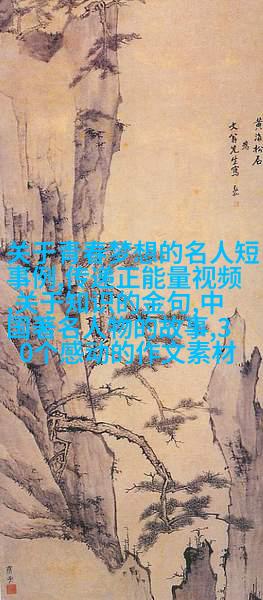 黄海松石
先生寫
关于青春梦想的名人短
事例,传递正能量视频
,关于知识的金句,中
国著名人物的故事,3
0个感动的作文素材